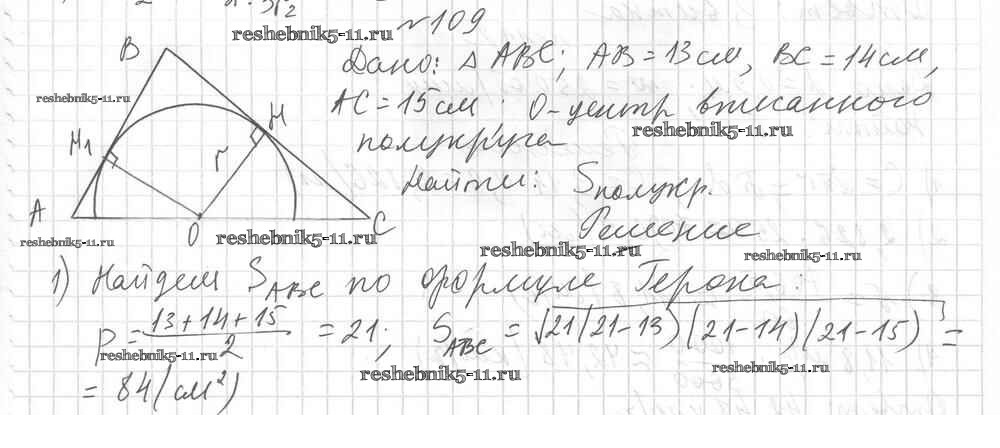 №109
Дано: △ ABC; AB = 13 см, BC = 14 см,
AC = 15 см. O-центр вписанного
полукруга
Найти: Sполукр.
Решение
B
H1
H
r
A
O
C
1) Найдем SABC по формуле Герона:
p = (13+14+15)/2 = 21; SABC = √21(21-13)(21-14)(21-15) =
= 84 (см²)
reshebnik5-11.ru
reshebnik5-11.ru
reshebnik5-11.ru
reshebnik5-11.ru
reshebnik5-11.ru
reshebnik5-11.ru
reshebnik5-11.ru
reshebnik5-11.ru
reshebnik5-11.ru
reshebnik5-11.ru